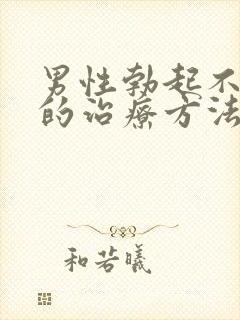 男性勃起不
的治療方法
和若曦